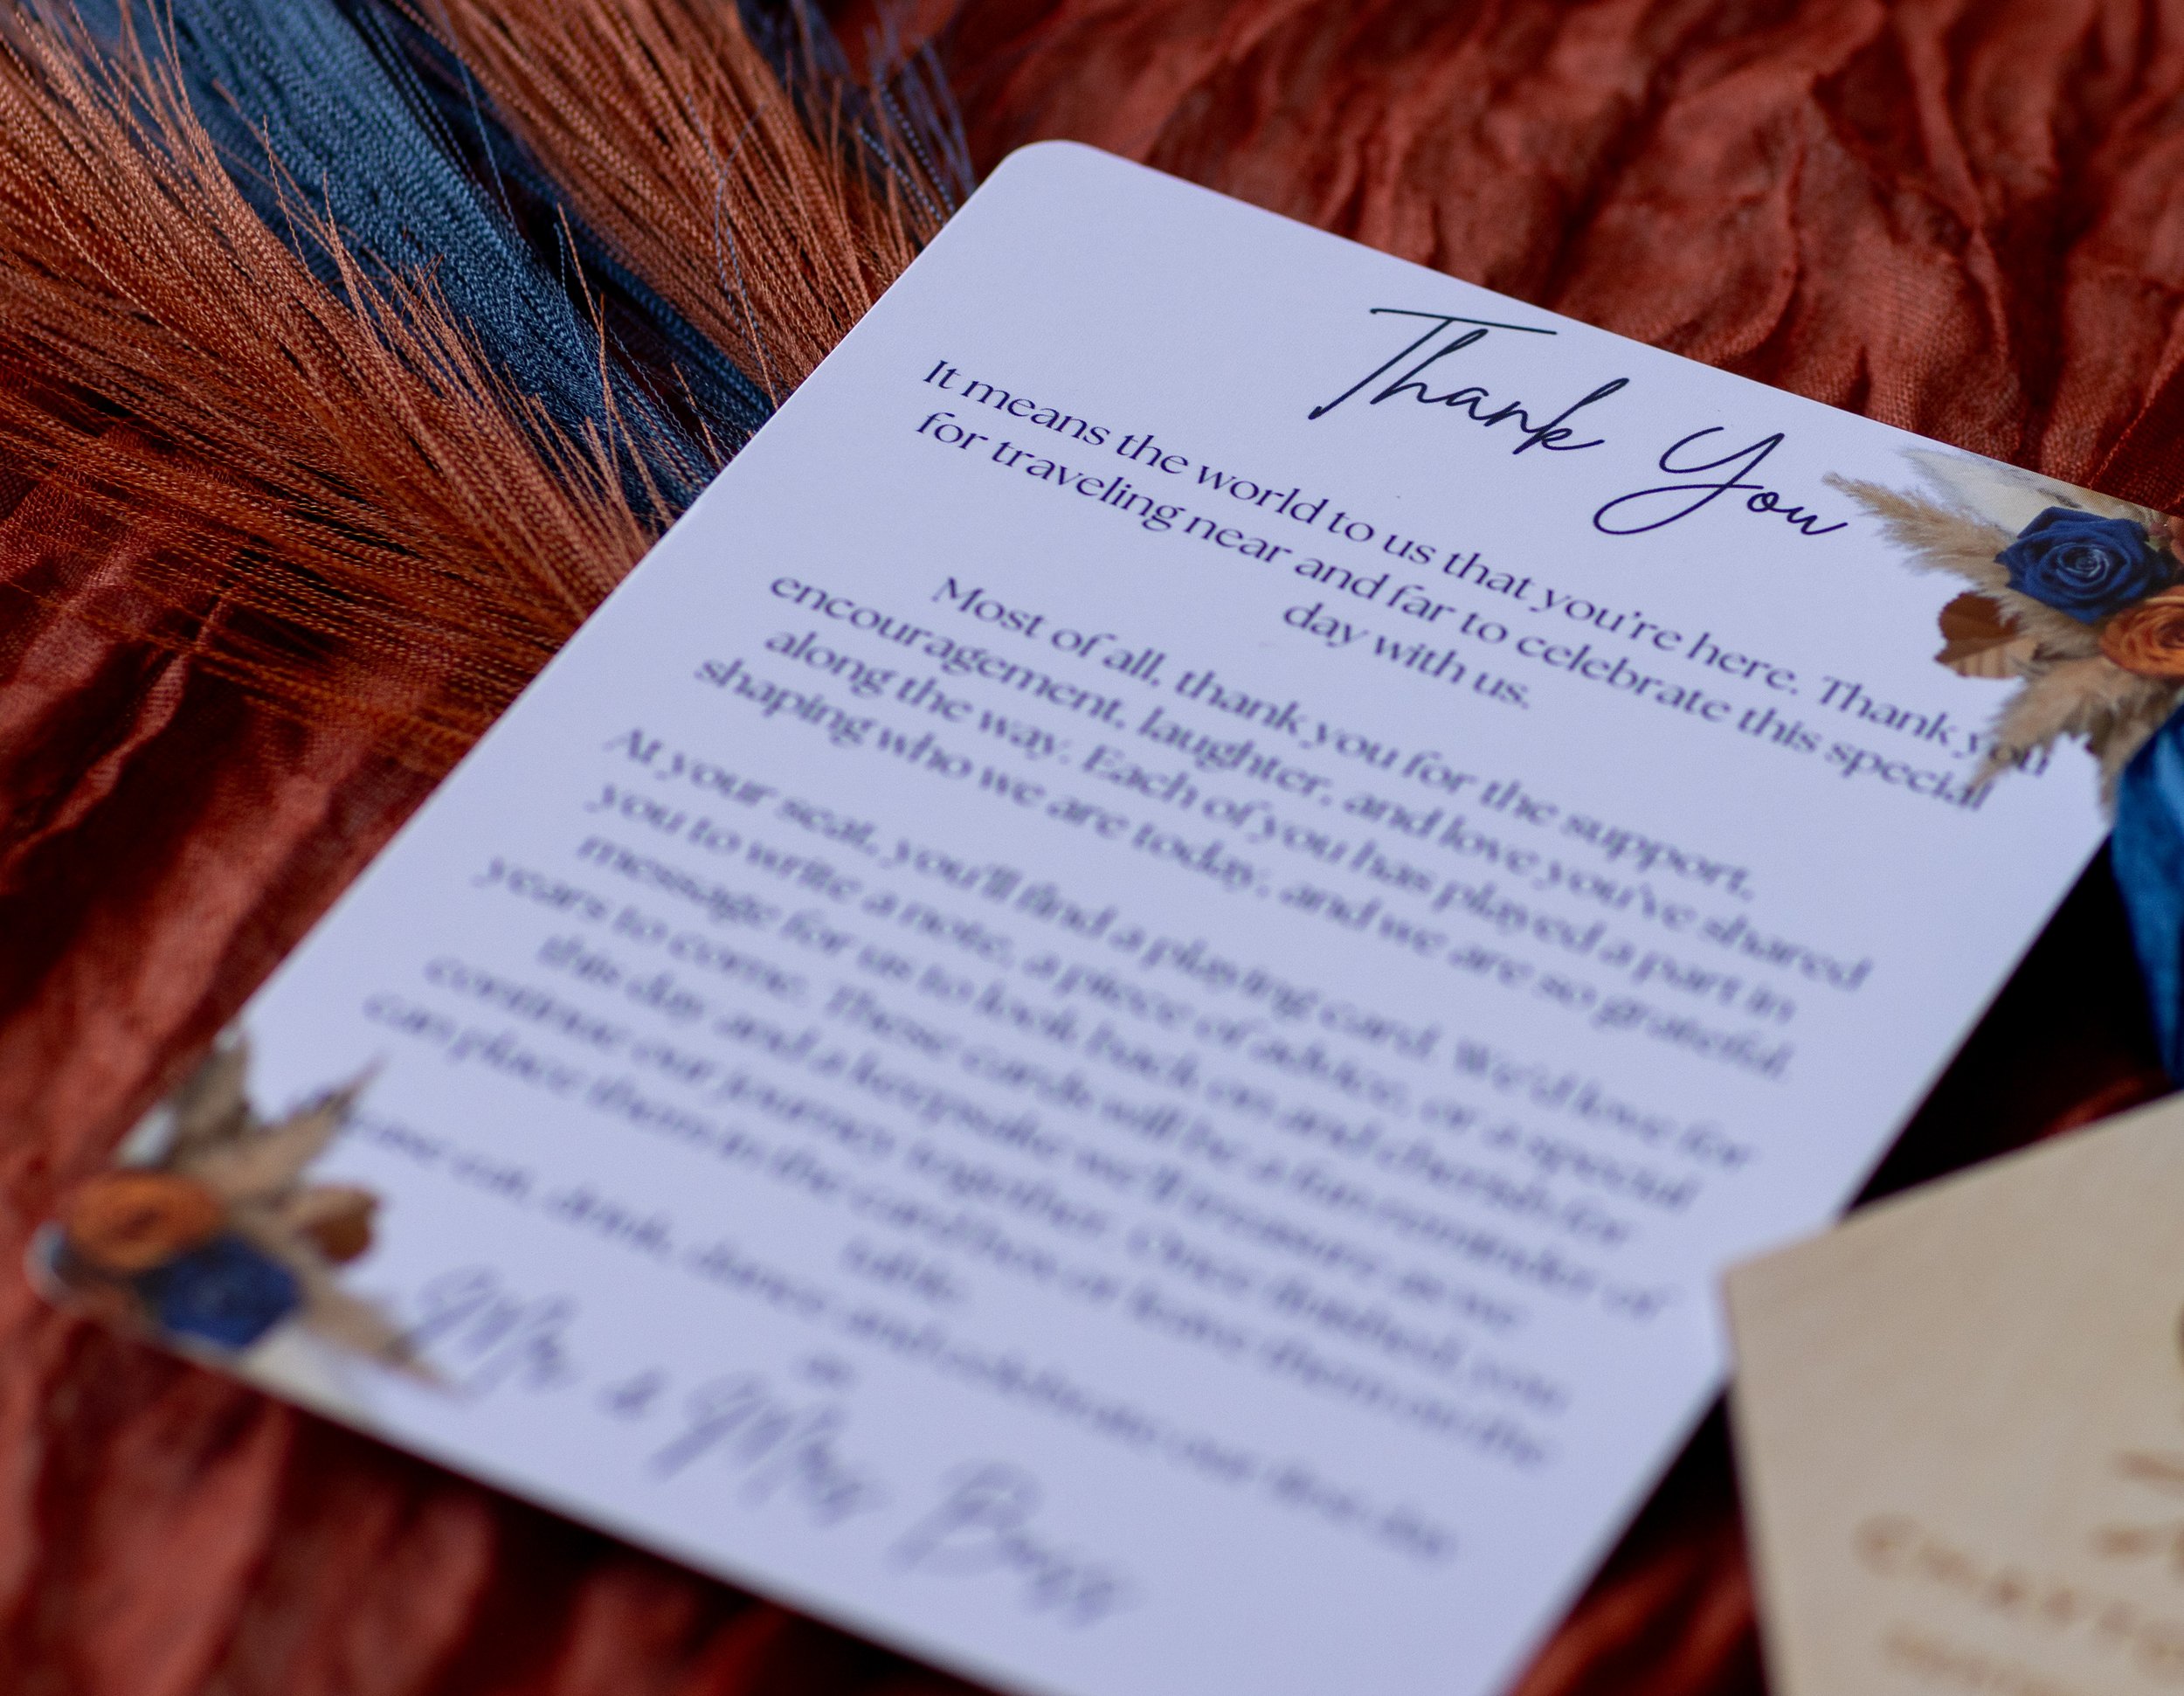 Thank You
It means the world to us that you're here. Thank you
for traveling near and far to celebrate this special
day with us.
Most of all, thank you for the support,
encouragement, laughter, and love you've shared
along the way. Each of you has played a part in
shaping who we are today, and we are so grateful.
At your seat, you'll find a playing card. We'd love for
you to write a note, a piece of advice, or a special
message for us to look back on and cherish for
years to come. These cards will be a fun reminder of
this day and a keepsake we'll treasure as we
continue our journey together. Once finished, you
can place them in the card box or leave them on the
table.
eat, drink, dance and celebrate our love for
us
Mr & Mrs